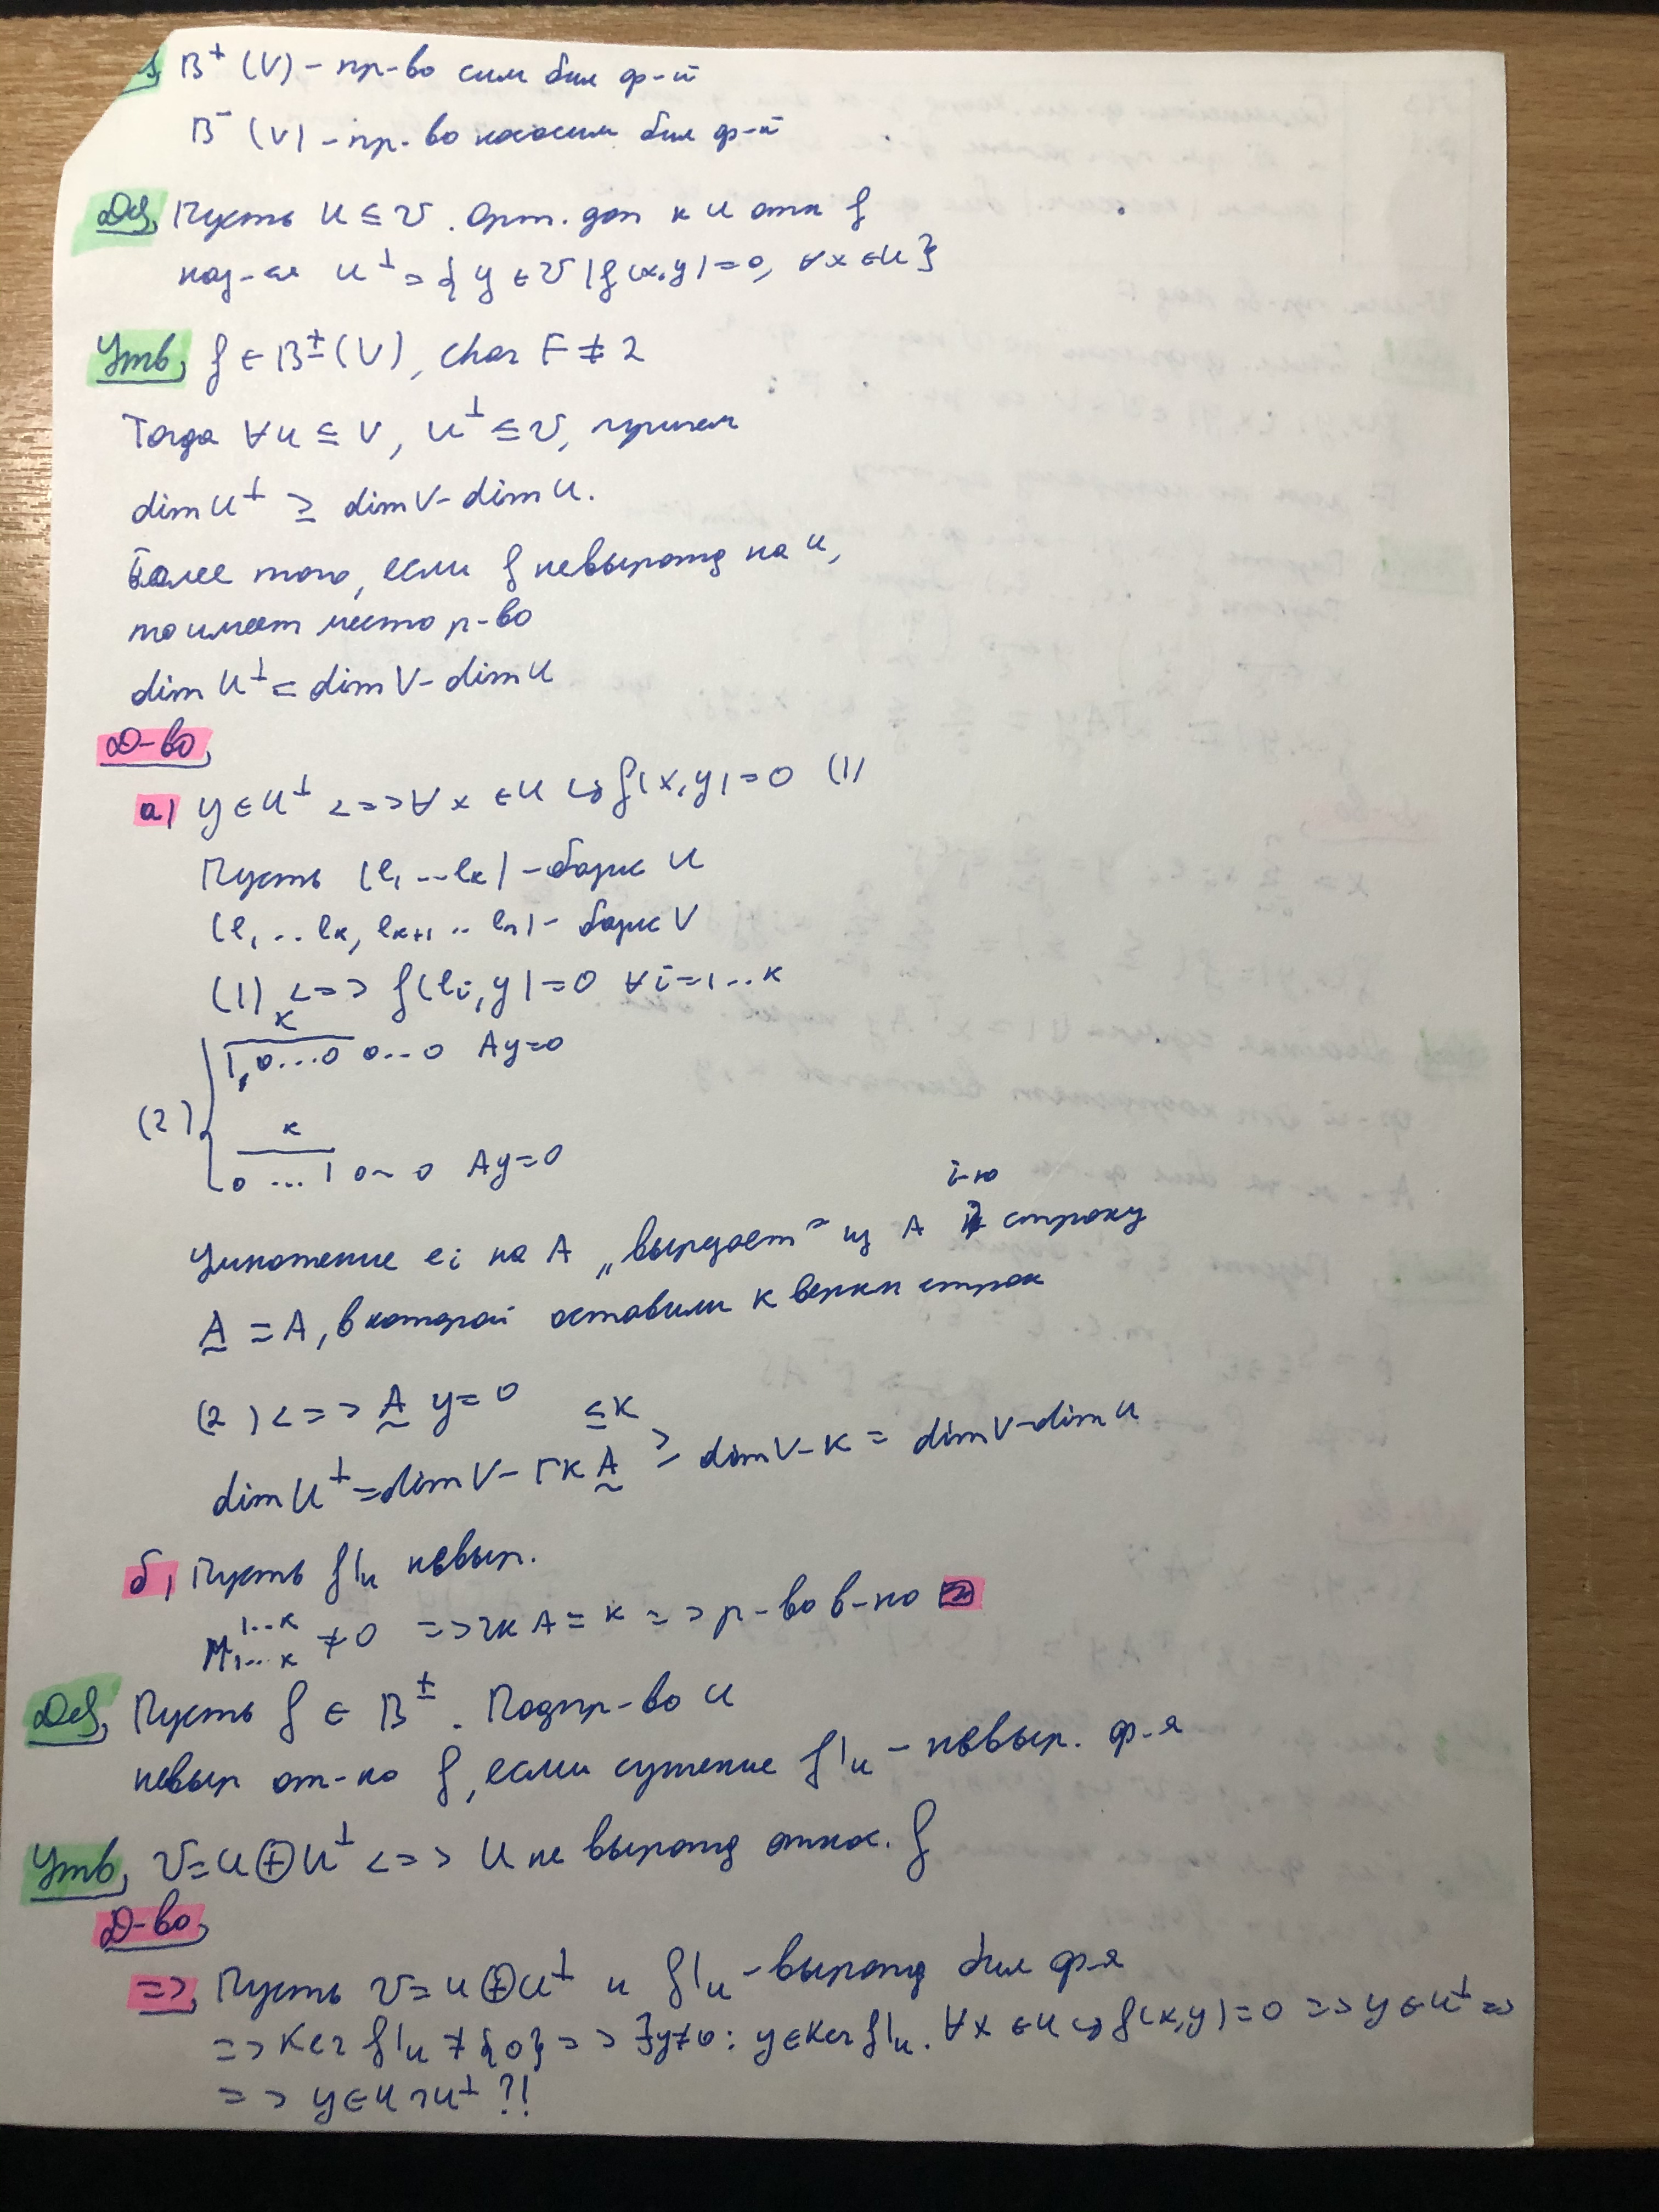 B⁺(V) – пр-во сим бил ф-й
B⁻(V) – пр-во кососим бил ф-й
Def, Пусть U ⊆ V. Орт. доп к U отн f
наз-ся U^⊥ = {y ∈ V | f(x,y) = 0, ∀x ∈ U}
Утв, f ∈ B^±(V), char F ≠ 2
Тогда ∀U ⊆ V, U^⊥ ⊆ V, причем
dim U^⊥ ≥ dim V - dim U.
Более того, если f невырожд на U,
то имеет место р-во
dim U^⊥ = dim V - dim U
Д-во,
а) y ∈ U^⊥ <=> ∀x ∈ U ↪ f(x,y) = 0 (1)
Пусть (e₁ ... eₖ) – базис U
(e₁ .. eₖ, eₖ₊₁ .. eₙ) – базис V
(1) <=> f(eᵢ, y) = 0 ∀i = 1 ... k
k
1, 0 ... 0 0 ... 0 Ay = 0
(2)
k
0 ... 1 0 ~ 0 Ay = 0
i-ю
Умножение eᵢ на A „вырезает“ из A строку
A̰ = A, в которой оставили k верхн строк
(2) <=> A̰ y = 0 ≤ k
dim U^⊥ = dim V - rk A̰ ≥ dim V - k = dim V - dim U
б, Пусть f|ᵤ невыр.
M¹···ᵏ₁...ₖ ≠ 0 => rk A = k => р-во в-но
Def, Пусть f ∈ B^±. Подпр-во U
невыр от-но f, если сужение f|ᵤ – невыр. ф-я
Утв, V = U ⊕ U^⊥ <=> U не вырожд относ. f
Д-во,
=>, Пусть V = U ⊕ U^⊥ и f|ᵤ – вырожд бил ф-я
=> Ker f|ᵤ ≠ {0} => ∃y ≠ 0 : y ∈ Ker f|ᵤ. ∀x ∈ U ↪ f(x,y) = 0 => y ∈ U^⊥ =>
=> y ∈ U ∩ U^⊥ ?!